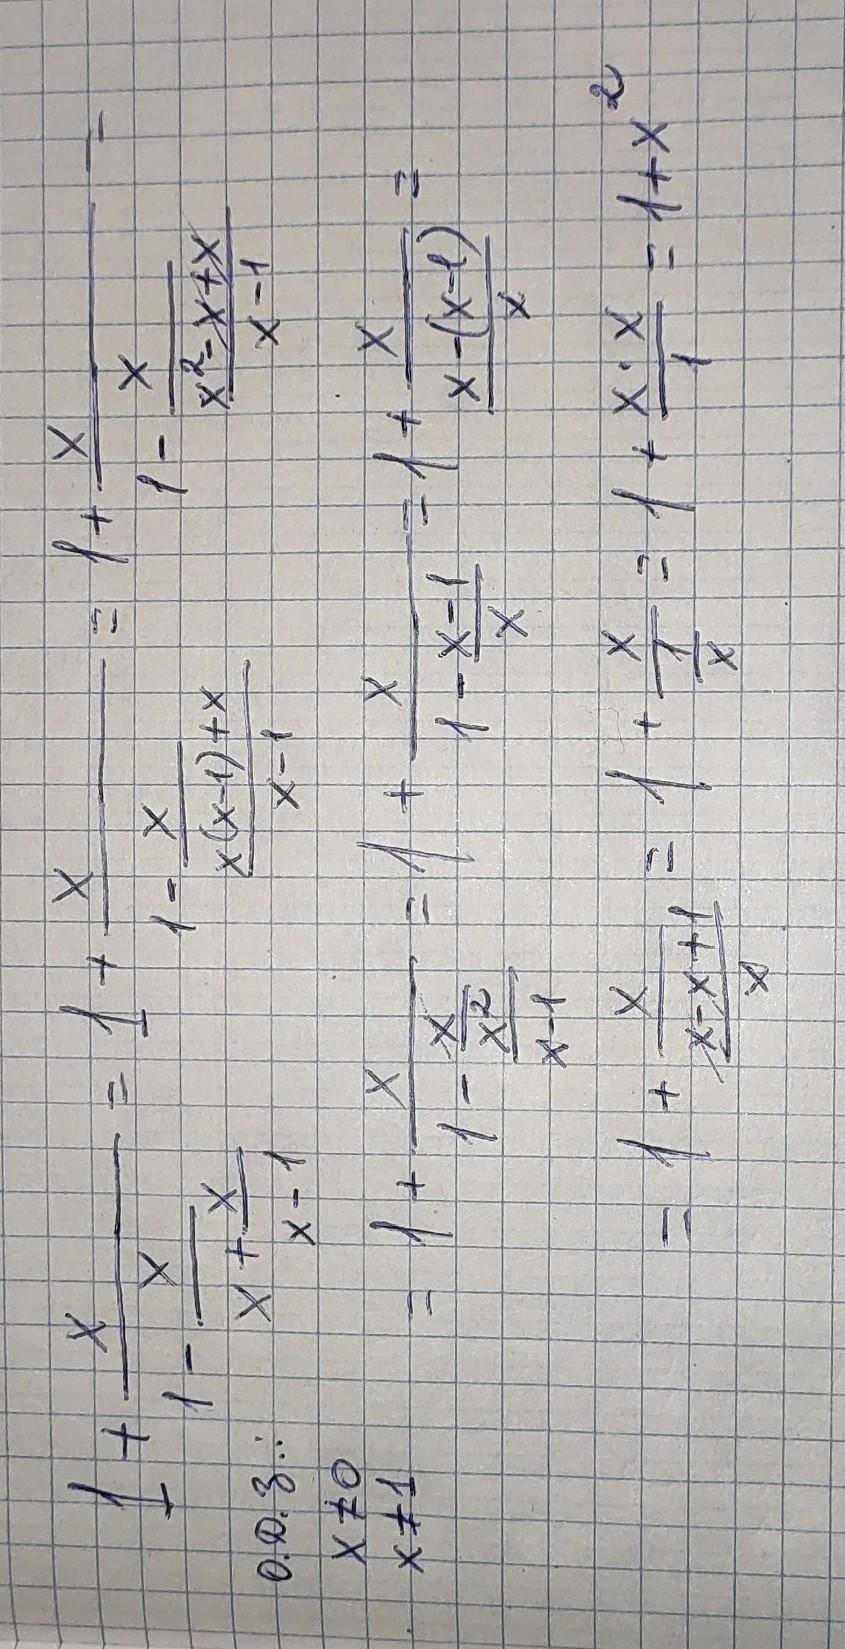 1 + x/(1 - x/(x + x/(x-1))) = 1 + x/(1 - x/((x(x-1)+x)/(x-1))) = 1 + x/(1 - x/((x²-x+x)/(x-1))) =
О.Д.З.:
x≠0
x≠1
= 1 + x/(1 - x/(x²/(x-1))) = 1 + x/(1 - (x-1)/x) = 1 + x/((x-(x-1))/x) =
= 1 + x/((x-x+1)/x) = 1 + x/(1/x) = 1 + (x·x)/1 = 1+x²